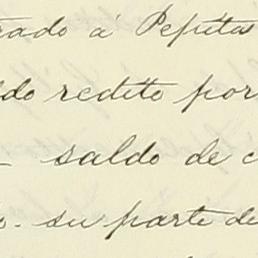 rado á Pepitas
do redito por
saldo de c
o. su parte de